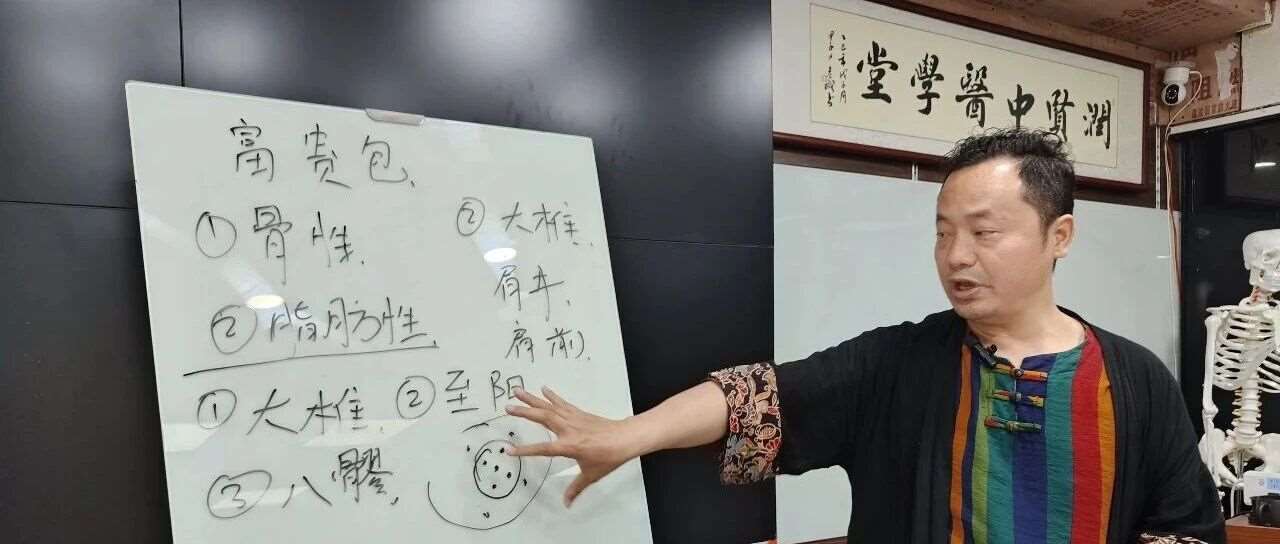 富贵包.
①骨性.
②脂肪性.
①大椎. ②至阳
③八髎.
②大椎.
肩井.
肩前.
潤賢中醫學堂